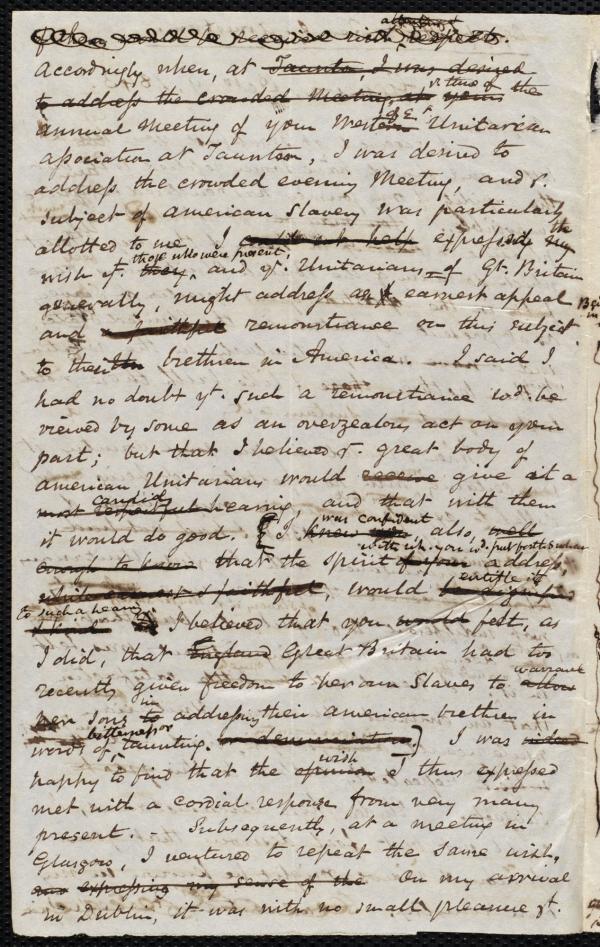 received with respects.
Accordingly when, at Taunton I was desired
to address the crowded Meeting, at virtue of the
annual Meeting of your Western Unitarian
Association at Taunton, I was desired to
address the crowded evening Meeting, and ye.
subject of American Slavery was particularly
allotted to me, I could not help expressing the my
those who were present,
wish yt. they, and yt. Unitarians of Gt. Britain
generally, might address an earnest appeal
and a faithful remonstrance on this subject
to their brethren in America. — I said I
had no doubt yt. such a remonstrance wd. be
viewed by some as an overzealous act on your
part; but that I believed ye. great body of
American Unitarians would receive give it a
candid
most respectful hearing, and that with them
was confident
it would do good. I knew also, well
with wh. you wd. put forth such an
enough to know that the spirit of your address,
entitle it
while earnest & faithful, would be
to such a hearing.
I believed that you would felt, as
I did, that England Great Britain had too
warrant
recently given freedom to her own Slaves to allow
in
her sons to addressing their American brethren in
bitterness or
words of taunting. or denunciation.] I was indeed
wish
happy to find that the opinion I thus expressed
met with a cordial response from very many
present. - Subsequently, at a meeting in
Glasgow, I ventured to repeat the same wish,
and expressing my sense of the On my arrival
in Dublin, it was with no small pleasure yt.